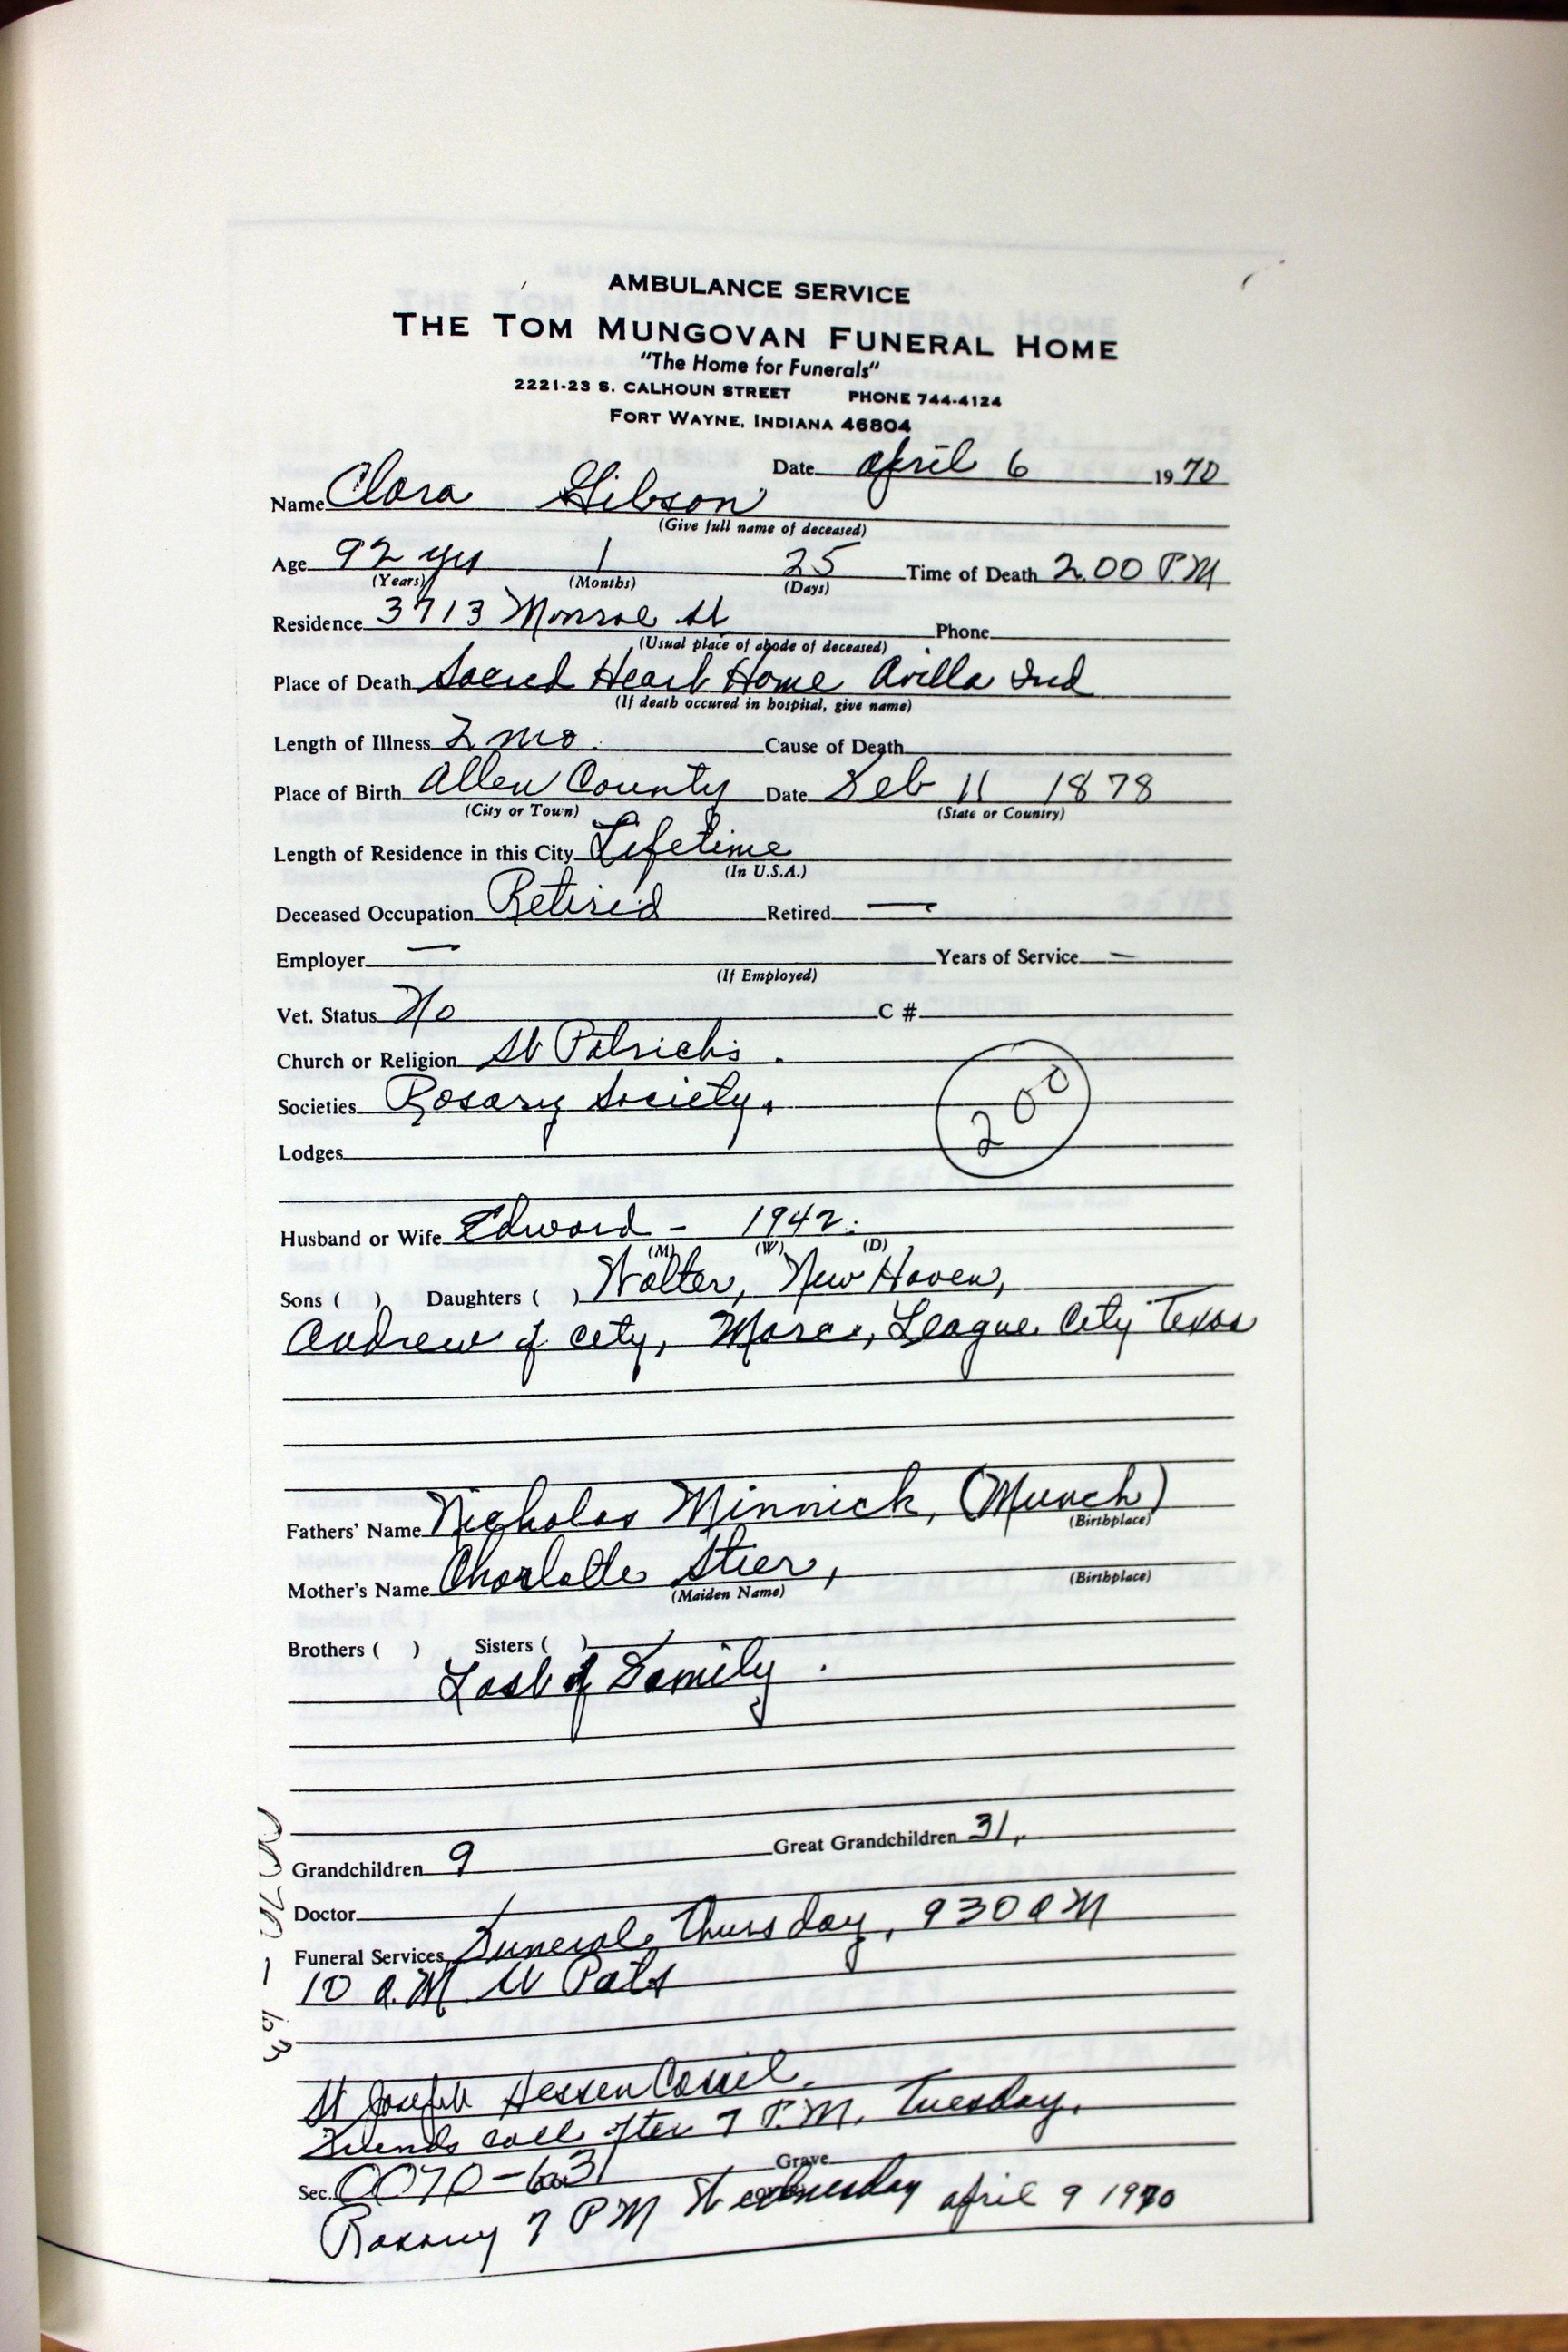 AMBULANCE SERVICE
THE TOM MUNGOVAN FUNERAL HOME
"The Home for Funerals"
2221-23 S. CALHOUN STREET PHONE 744-4124
FORT WAYNE, INDIANA 46804
Date April 6 1970
Name Clara Gibson
(Give full name of deceased)
Age 92 yrs 1 25 Time of Death 2.00 PM
(Years) (Months) (Days)
Residence 3713 Monroe St Phone
(Usual place of abode of deceased)
Place of Death Sacred Heart Home Avilla Ind
(If death occured in hospital, give name)
Length of Illness 2 mo. Cause of Death
Place of Birth Allen County Date Feb 11 1878
(City or Town) (State or Country)
Length of Residence in this City Lifetime
(In U.S.A.)
Deceased Occupation Retired Retired —
Employer — Years of Service —
(If Employed)
Vet. Status No C #
Church or Religion St Patricks.
Societies Rosary Society.
200
Lodges
Husband or Wife Edward - 1942.
(M) (W) (D)
Sons ( ) Daughters ( ) Walter, New Haven,
Andrew of city, League City Texas
Fathers' Name Nicholas Minnick, (Munch)
(Birthplace)
Mother's Name Charlotte Stier,
(Maiden Name) (Birthplace)
Brothers ( ) Sisters ( )
Last of Family.
Grandchildren 9 Great Grandchildren 31,
Doctor
Funeral Services Funeral Thursday, 930 AM
10 a.M. St Pats
St Joseph Hessen Cassel.
Friends call after 7 P.M. Tuesday.
Sec. 0070-63 Grave
Rosary 7 PM Wednesday April 9 1970